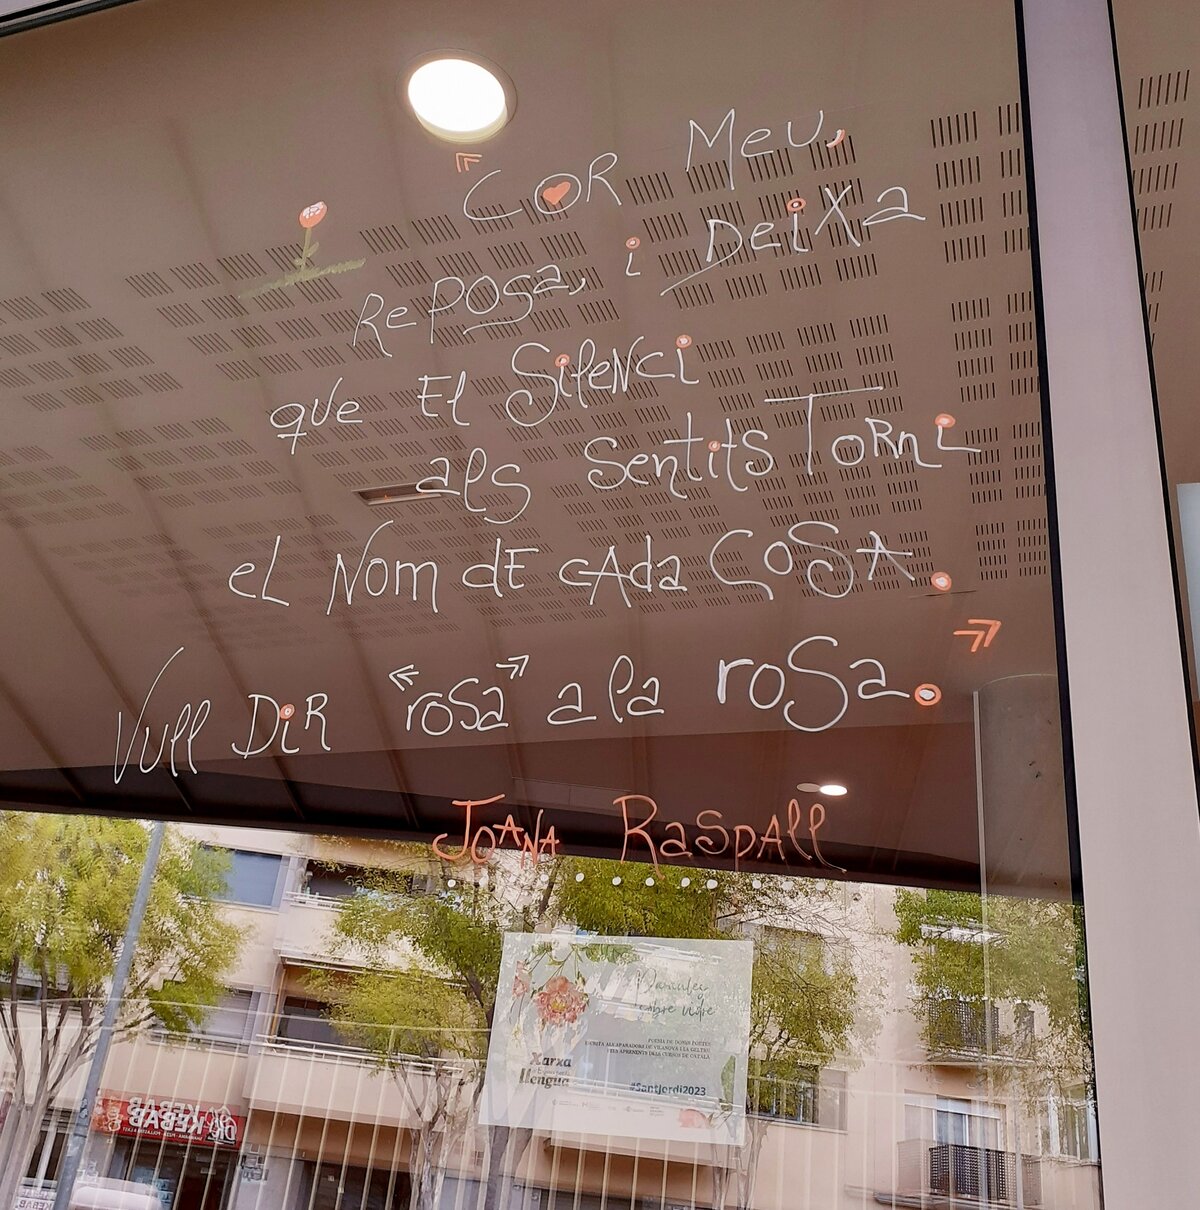 « COR MEU,
REPOSA, i DEIXA
QUE EL SILENCI
ALS SENTITS TORNI
EL NOM DE CADA COSA. »
VULL DIR «ROSA» A LA ROSA.
JOANA RASPALL
Paraules
sobre vidre
POESIA DE DONES POETES
ESCRITA ALS APARADORS DE VILANOVA I LA GELTRÚ
PELS APRENENTS DELS CURSOS DE CATALÀ
Xarxa
llengua
#SantJordi2023
KEBAB
DK KEBAB
KEBAB